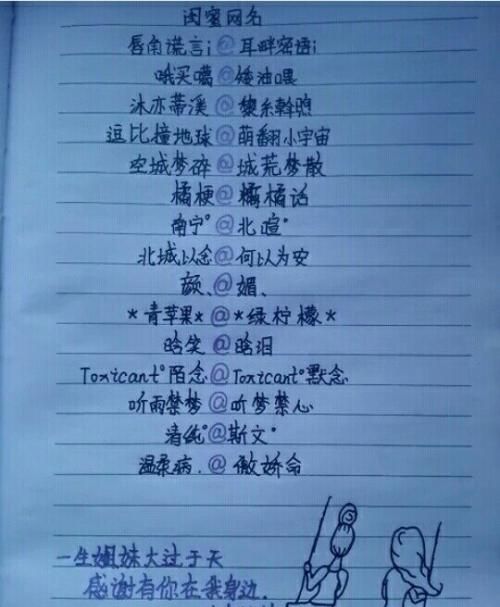 闺蜜网名
唇角谎言i@耳畔密语i
哦买噶@矮油喂
沐亦蒂溪@黎系幹煦
逗比撞地球@萌翻小宇宙
空城梦碎@城荒梦散
橘梗@橘话
南宁°@北喧°
北城以念@何以为安
颜、@媚、
*青苹果*@*绿柠檬*
晗笑@晗泪
Toxicant°陌念@Toxicant°默念
听雨禁梦@听梦禁心
清纯°@斯文°
温柔病.@傲娇命
一生姐妹大过于天
感谢有你在我身边.